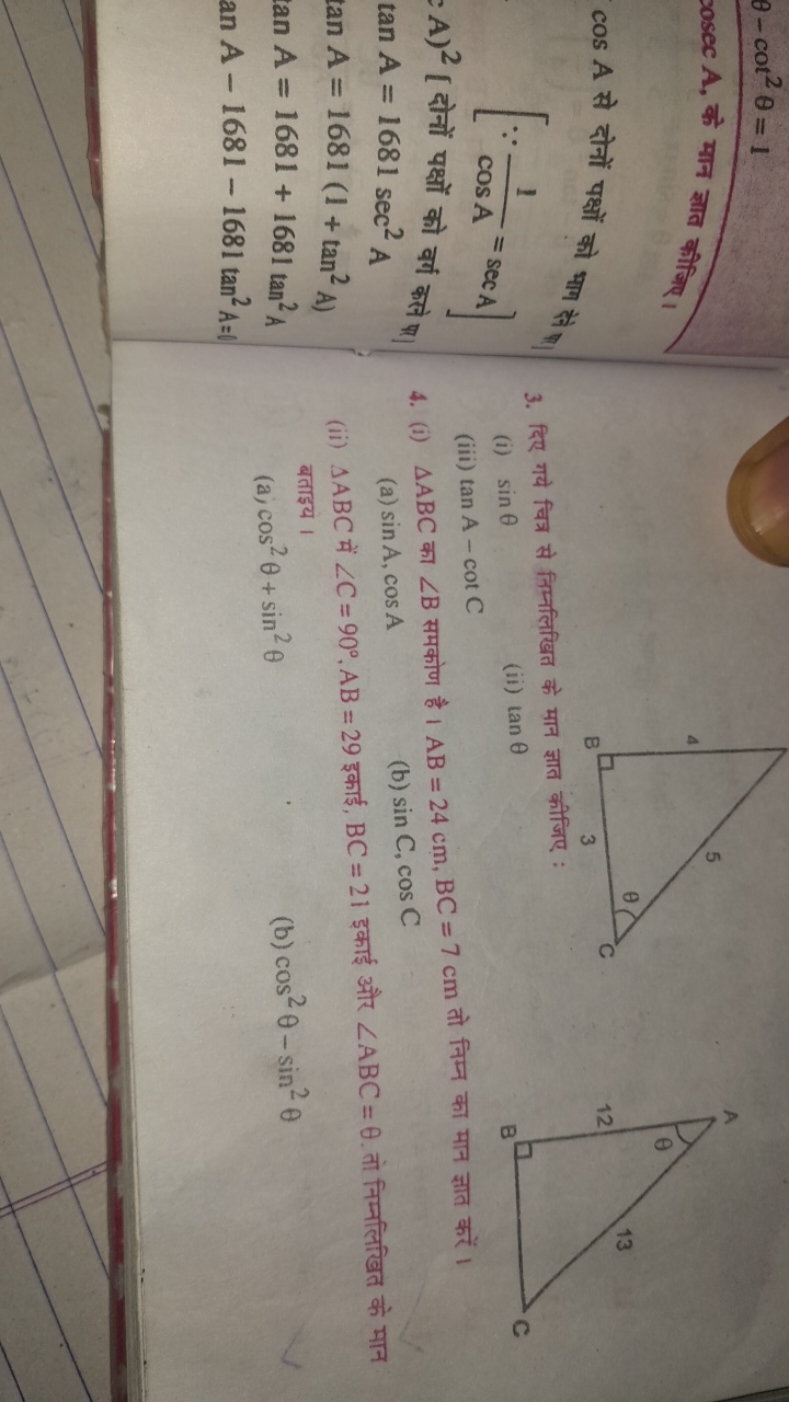 θ – cot² θ = 1
cosec A, के मान ज्ञात कीजिए।
cos A से दोनों पक्षों को भाग देने पर।
[∵ 1/cos A = sec A]
A)² [ दोनों पक्षों को वर्ग करने पर।
tan A = 1681 sec² A
tan A = 1681 (1 + tan² A)
tan A = 1681 + 1681 tan² A
tan A – 1681 – 1681 tan² A = 0
4
5
B
3
θ
C
A
θ
12
13
B
C
3. दिए गये चित्र से निम्नलिखित के मान ज्ञात कीजिए :
(i) sin θ (ii) tan θ
(iii) tan A – cot C
4. (i) ΔABC का ∠B समकोण है। AB = 24 cm, BC = 7 cm तो निम्न का मान ज्ञात करें।
(a) sin A, cos A (b) sin C, cos C
(ii) ΔABC में ∠C = 90°, AB = 29 इकाई, BC = 21 इकाई और ∠ABC = θ. तो निम्नलिखित के मान
बताइये।
(a) cos² θ + sin² θ (b) cos² θ – sin² θ